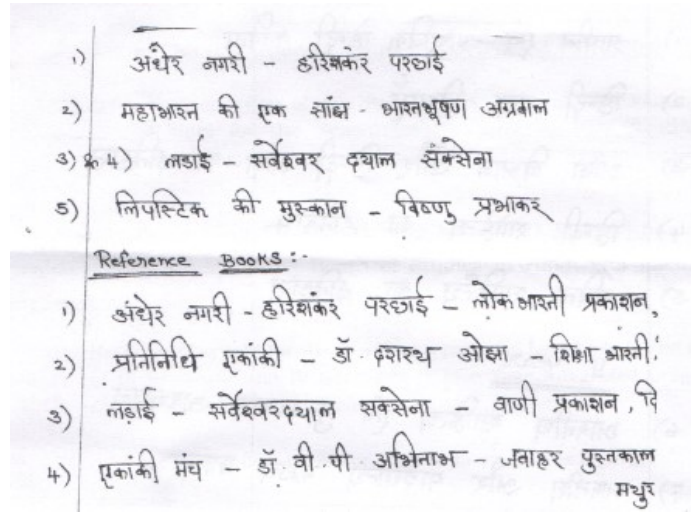 1) अंधेर नगरी - हरिशकंर परछाई
2) महाभारत की एक सांझ - भारतभूषण अग्रवाल
3) & 4) लडाई - सर्वेश्वर दयाल संक्सेना
5) लिपस्टिक की मुस्कान - विष्णु प्रभाकर
Reference Books :-
1) अंधेर नगरी - हरिशंकर परछाई - लोकभारती प्रकाशन,
2) प्रतिनिधि एकाकी - डॉ. दशरथ ओझा - शिक्षा भारती,
3) लड़ाई - सर्वेश्वरदयाल सक्सेना - वाणी प्रकाशन, दि
4) एकांकी मंच - डॉ. वी. पी. अभिताभ - जवाहर पुस्तकाल
मथुर